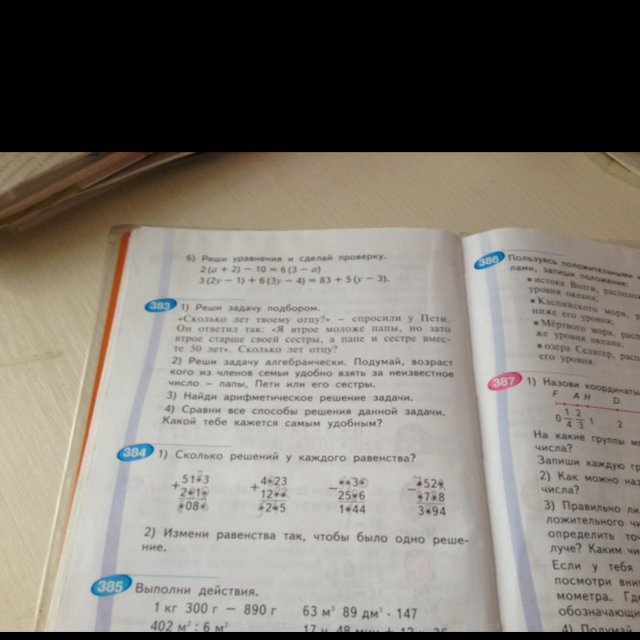 б) Реши уравнения и сделай проверку.
2(a + 2) − 10 = 6(3 − a)
3(2y − 1) + 6(3y − 4) = 83 + 5(y − 3).
383 1) Реши задачу подбором.
«Сколько лет твоему отцу?» – спросили у Пети.
Он ответил так: «Я втрое моложе папы, но зато
втрое старше своей сестры, а папе и сестре вмес-
те 50 лет». Сколько лет отцу?
2) Реши задачу алгебраически. Подумай, возраст
кого из членов семьи удобно взять за неизвестное
число – папы, Пети или его сестры.
3) Найди арифметическое решение задачи.
4) Сравни все способы решения данной задачи.
Какой тебе кажется самым удобным?
384 1) Сколько решений у каждого равенства?
+ 51*3 + 4*23 − **3* − *52*
2*1* 12** 25*6 *7*8
*08* *2*5 1*44 3*94
2) Измени равенства так, чтобы было одно реше-
ние.
385 Выполни действия.
1 кг 300 г − 890 г 63 м³ 89 дм³ · 147
402 м² : 6 м²
386 Пользуясь положительными
лами, запиши положение:
▪ истока Волги,
уровня океана;
▪ Каспийского моря,
ниже его уровня;
▪ Мёртвого моря,
же уровня океана;
▪ озера Селигер,
его уровня.
387 1) Назови координаты
F A H D
0 1/4 2/3 1 2
На какие группы
числа?
Запиши каждую
2) Как можно
числа?
3) Правильно ли
ложительного
определить
луче? Каким
Если у тебя
посмотри
мометра.
обозначающие
4) Подумай